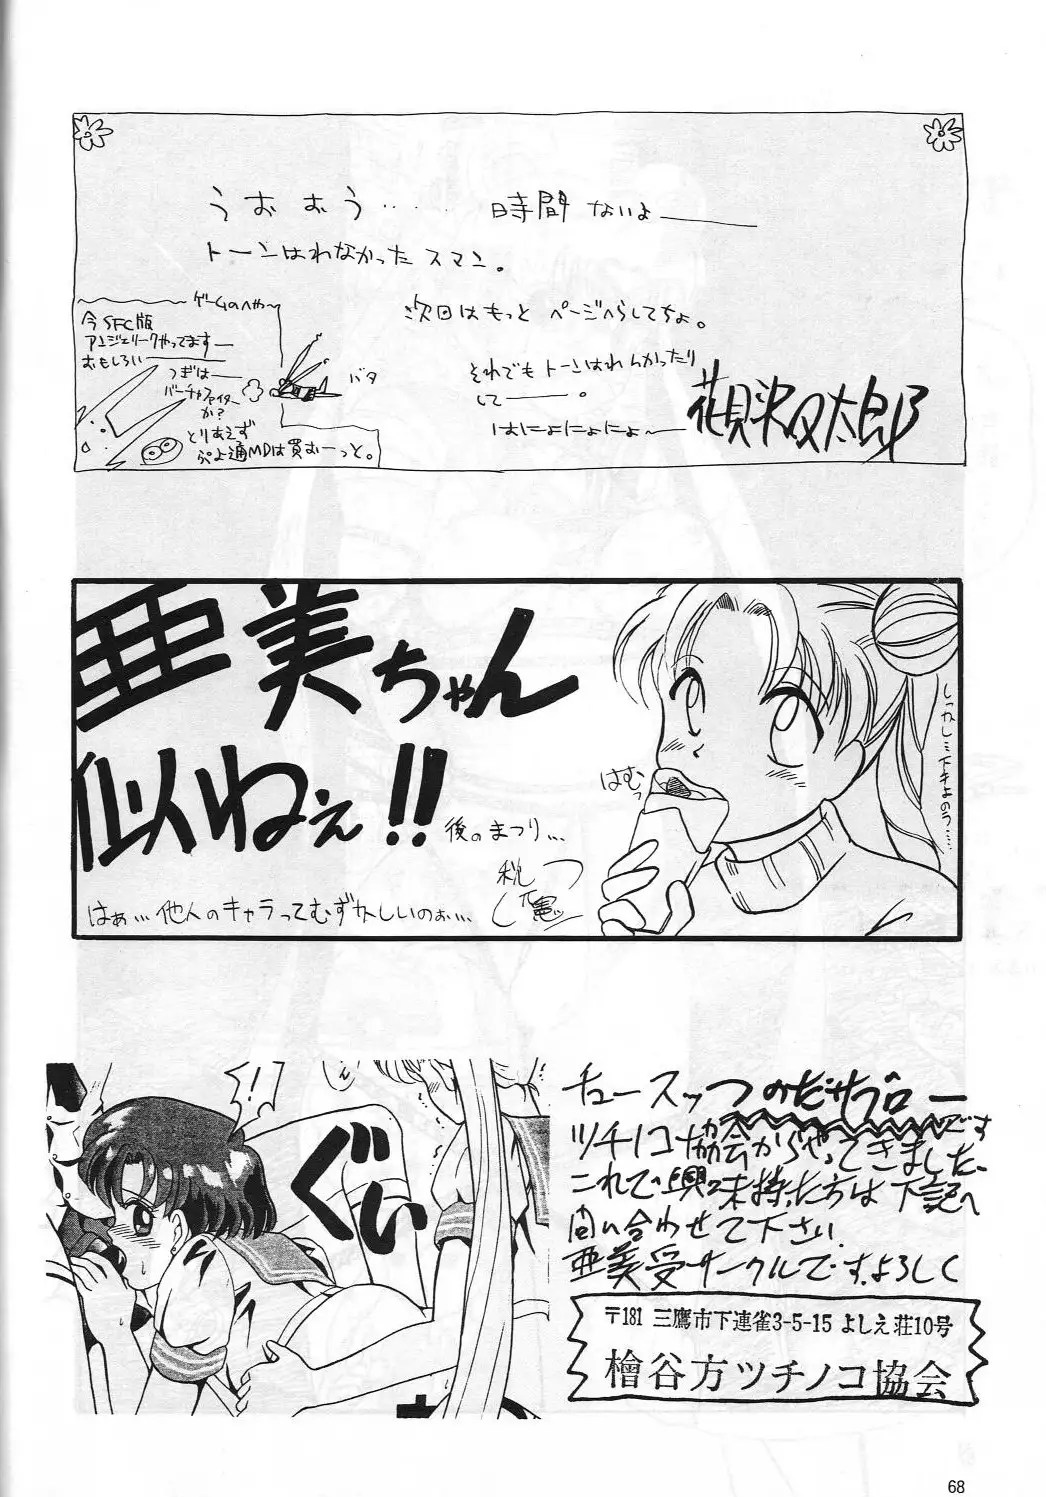 うおおう‥‥ 時間ないよ――
トーンはれなかったスマン。
次回はもっとページへらしてちょ。
それでもトーンはれんかったり
して――。
はにょにょにょ〜
ゲームのへや〜
今SFC版
アンジェリークやってます―
おもしろい――
つぎは――
バーチャファイター
か?
とりあえず
ぷよ通MDは買むーっと。
バタ
亜美ちゃん
似ねぇ!!
後のまつり…
はぁ…他人のキャラってむずかしいのぉ…
はむっ
!?
ぐい
チュースッつのだサブローです
ツチノコ協会からやってきました、
これで興味持た方は下記へ
問い合わせて下さい
亜美受サークルです。よろしく
〒181 三鷹市下連雀3-5-15 よしえ荘10号
檜谷方ツチノコ協会
68